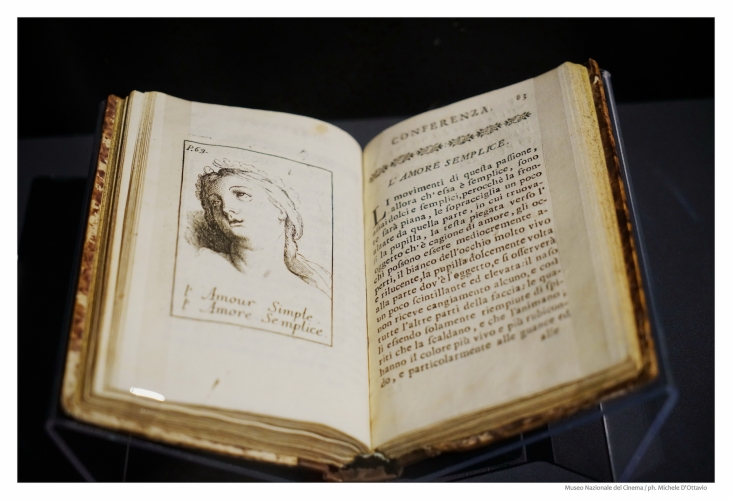 P.63.
l' Amour Simple
l' Amore Semplice
CONFERENZA. 63
L' AMORE SEMPLICE.
LI movimenti di queſta paſſione,
allora ch' eſſa è ſemplice, ſono
dolci e ſemplici, perocchè la fron-
te ſarà piana, le ſopracciglia un poco
alzate da quella parte, in cui truova-
ſi la pupilla, la teſta piegata verſo l'
oggetto ch'è cagione di amore, gli oc-
chi poſſono eſſere mediocremente a-
perti, il bianco dell'occhio molto vivo
e rilucente, la pupilla dolcemente volta
alla parte dov'è l'oggetto, e ſi oſſerverà
un poco ſcintillante ed elevata: il naſo
non riceve cangiamento alcuno, e così
tutte l'altre parti della faccia: le qua-
li eſſendo ſolamente riempiute di ſpi-
riti che la ſcaldano, e che l'animano,
hanno il colore più vivo e più rubicon-
do, e particolarmente alle guance ed
alle
Museo Nazionale del Cinema / ph. Michele D'Ottavio